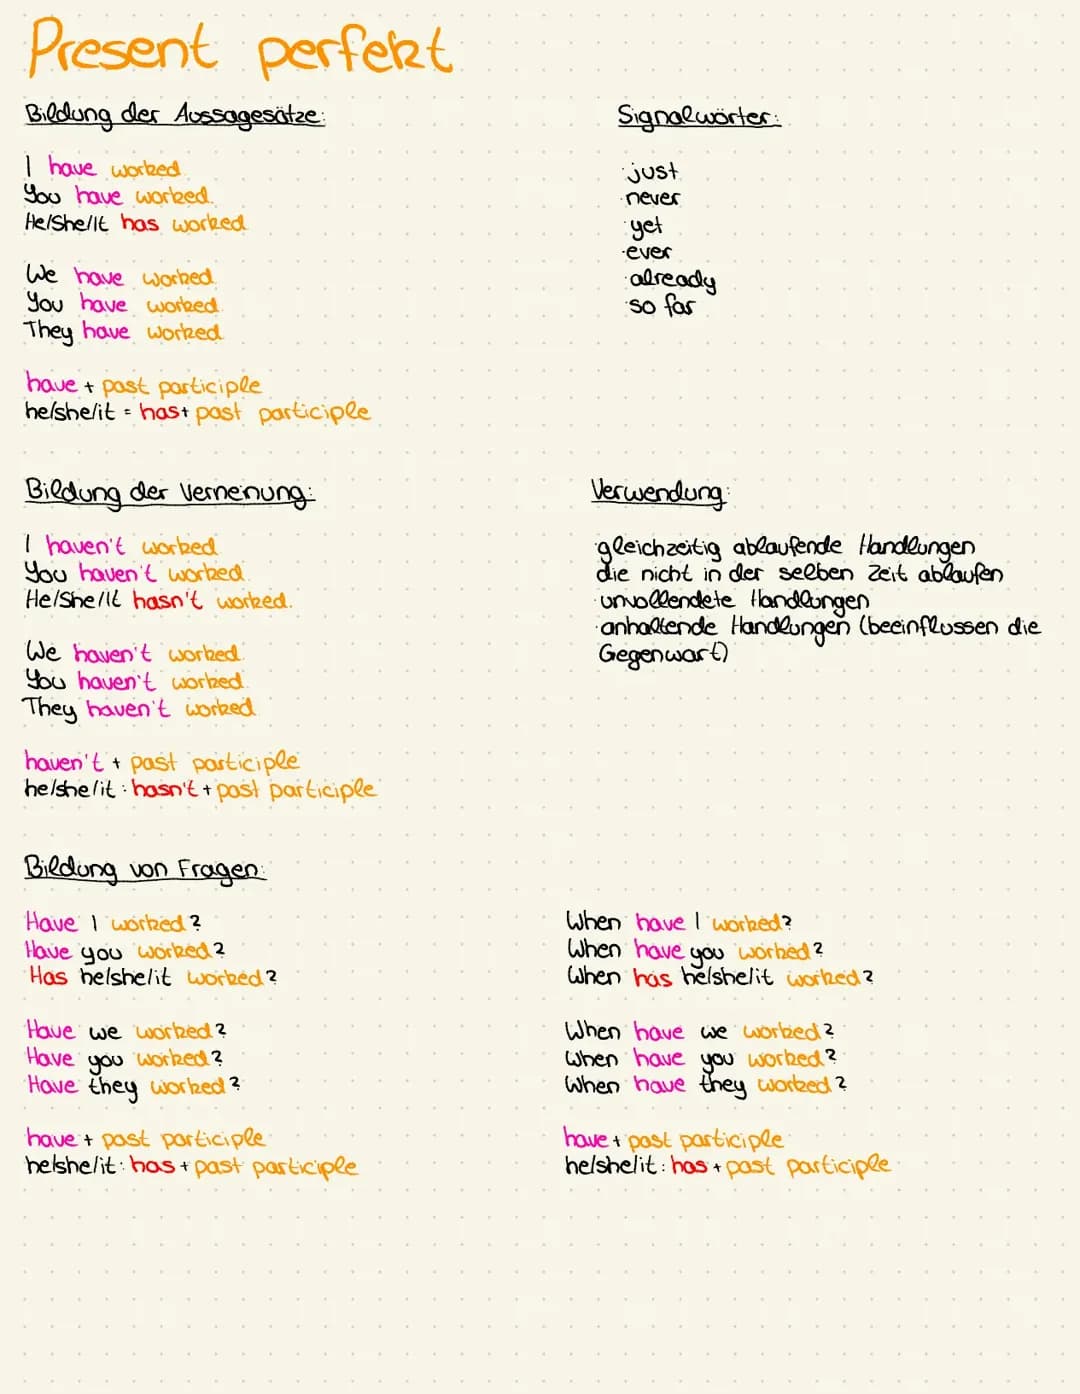 Present perfekt
Bildung der Aussagesätze:
I have worked.
You have worked.
He/She/It has worked.
We have worked.
You have worked.
They have worked.
have + past participle
he/she/it = has + past participle
Signalwörter:
·just
·never
·yet
·ever
·already
·so far
Bildung der Verneinung:
I haven't worked.
You haven't worked.
He/She/It hasn't worked.
We haven't worked.
You haven't worked.
They haven't worked.
haven't + past participle
he/she/it : hasn't + past participle
Verwendung:
·gleichzeitig ablaufende Handlungen
die nicht in der selben Zeit ablaufen
·unvollendete Handlungen
·anhaltende Handlungen (beeinflussen die
Gegenwart)
Bildung von Fragen:
Have I worked?
Have you worked?
Has he/she/it worked?
Have we worked?
Have you worked?
Have they worked?
have + past participle
he/she/it : has + past participle
When have I worked?
When have you worked?
When has he/she/it worked?
When have we worked?
When have you worked?
When have they worked?
have + past participle
he/she/it : has + past participle